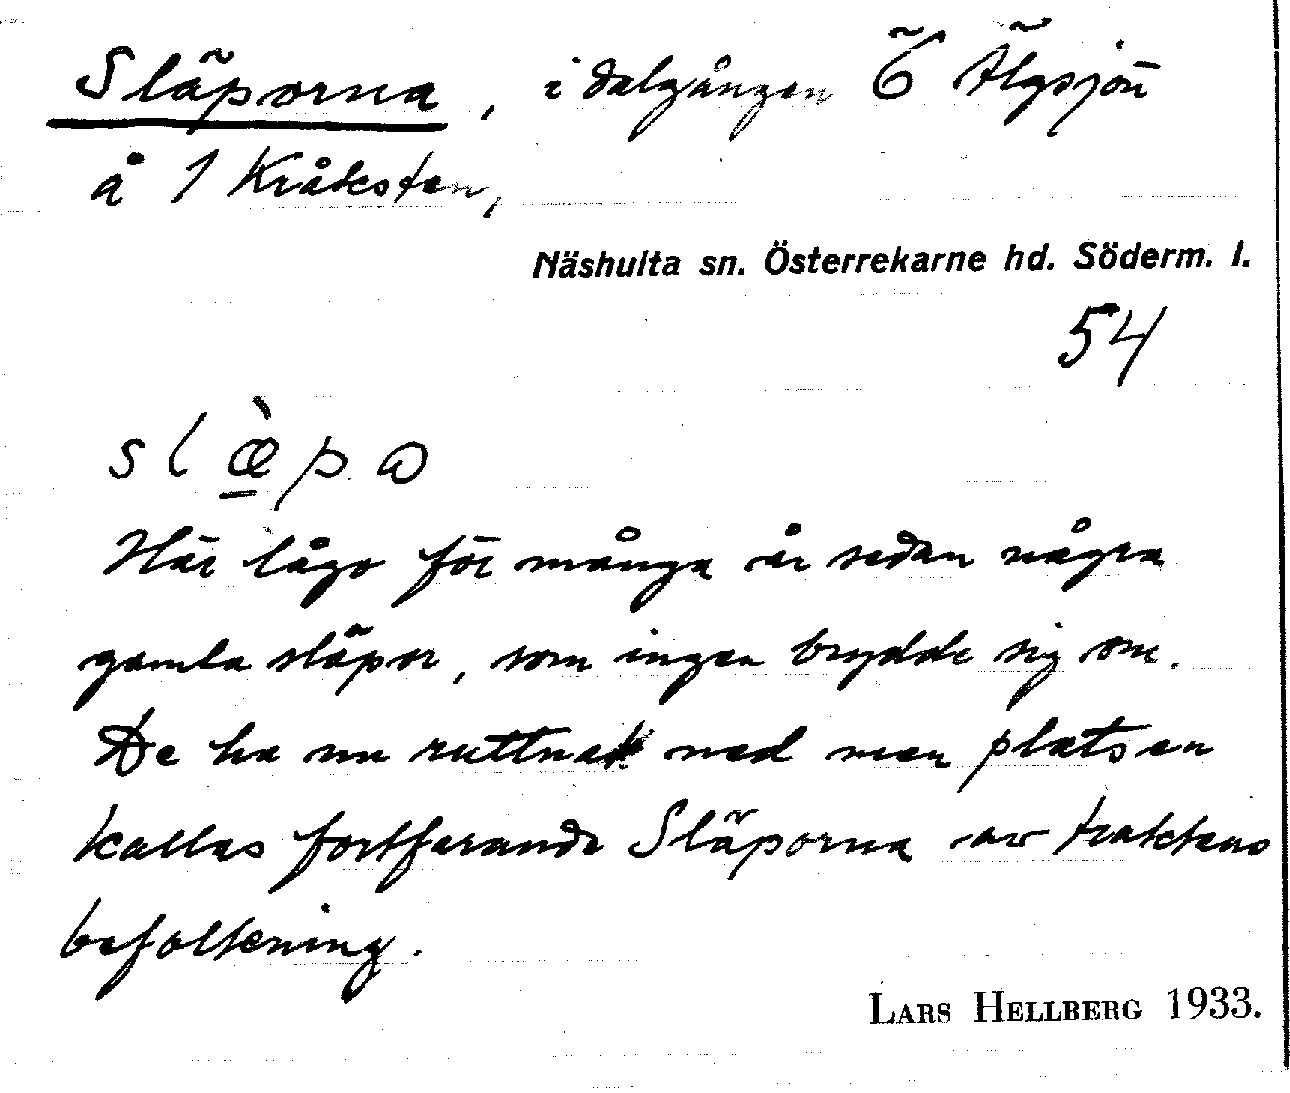 Släporna, i dalgången Ö Älgsjön
å 1 Kråksten,
Näshulta sn. Österrekarne hd. Söderm. l.
54
slæ̀pɷ
Här lågo för många år sedan några
gamla släpor, som ingen brydde sig om.
De ha nu ruttnat ned men platsen
kallas fortfarande Släporna av traktens
befolkning.
LARS HELLBERG 1933.